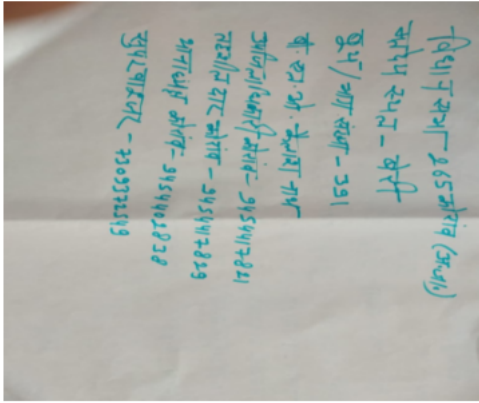 विधान सभा 265 कोरांव (अ.जा.)
मतदेय स्थल - बेरी
बूथ / भाग संख्या - 391
बी. एल. ओ. कैलाश नाथ
उपजिलाधिकारी कोरांव - 9454417821
तहसीलदार कोरांव - 9454417829
थानाध्यक्ष कोरांव - 9454402838
सुपरवाइजर - 7309372549